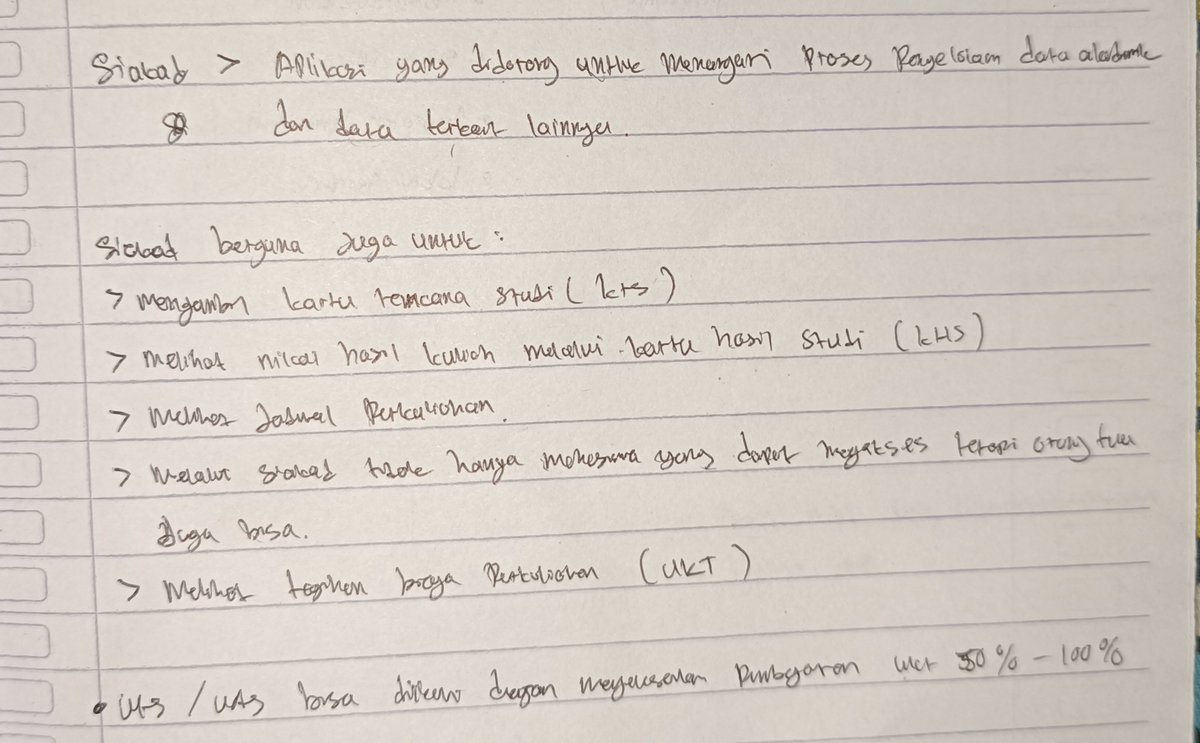 Siakad > Aplikasi yang didorong untuk menangani proses Pengelolaan data akademik
dan data terkait lainnya.
Siakad berguna Juga untuk :
> mengambil kartu rencana studi ( krs )
> melihat nilai hasil kuliah melalui kartu hasil studi ( KHS )
> melihat Jadwal Perkuliahan.
> melalui siakad tidak hanya mahasiswa yang dapat megakses tetapi orang tua
Juga bisa.
> Melihat tagihan biaya Perkuliahan ( UKT )
• UTS / UAS bisa diikuti dengan UKT 50% - 100%